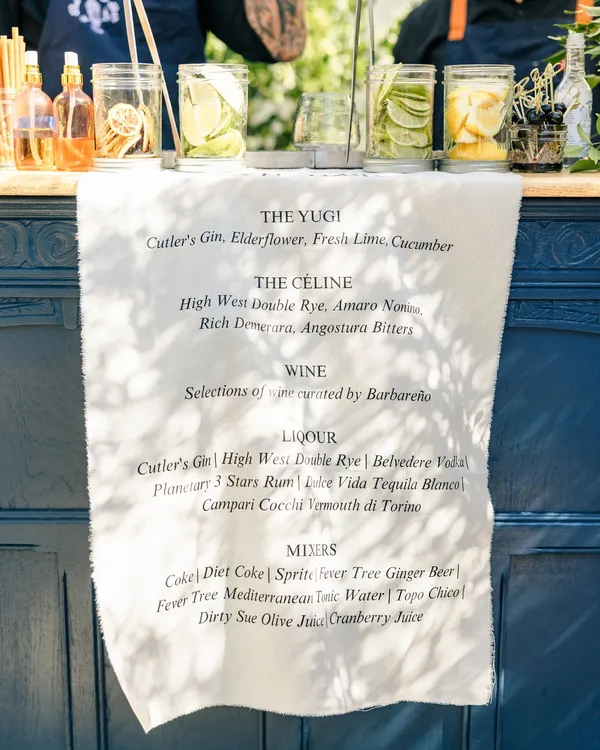 THE YUGI
Cutler's Gin, Elderflower, Fresh Lime, Cucumber
THE CÉLINE
High West Double Rye, Amaro Nonino,
Rich Demerara, Angostura Bitters
WINE
Selections of wine curated by Barbareño
LIQOUR
Cutler's Gin | High West Double Rye | Belvedere Vodka |
Planetary 3 Stars Rum | Dulce Vida Tequila Blanco |
Campari Cocchi Vermouth di Torino
MIXERS
Coke | Diet Coke | Sprite | Fever Tree Ginger Beer |
Fever Tree Mediterranean Tonic Water | Topo Chico |
Dirty Sue Olive Juice | Cranberry Juice